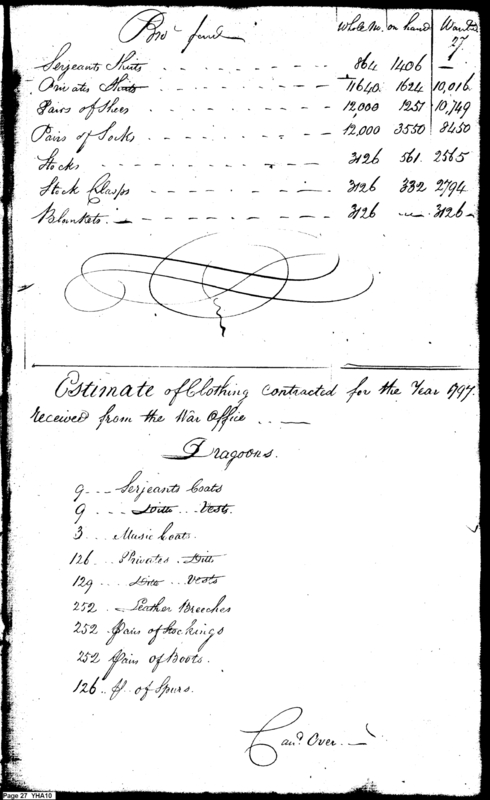 Bro.t forwd Whole No. on hand Wanted
27
Serjeants Shirts 864 1406 —
Privates Shirts 11640 1624 10,016
Pairs of Shoes 12,000 1251 10,749
Pairs of Socks 12,000 3550 8450
Stocks 3126 561 2565
Stock Clasps 3126 332 2794
Blankets 3126 — 3126
Estimate of Clothing contracted for the Year 1797.
received from the War Office
Dragoons.
9 Serjeants Coats
9 Ditto Vests
3 Music Coats
126 Privates Ditto
129 Ditto Vests
252 Leather Breeches
252 Pairs of Stockings
252 Pairs of Boots.
126 P. of Spurs.
Car.d Over
Page 27 YHA10